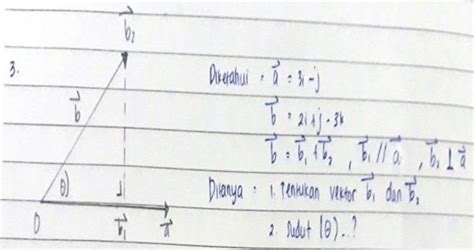 b⃗₂
3.
Diketahui : a⃗ = 3i - j
b⃗
b⃗ = 2i + j - 3k
b⃗ = b⃗₁ + b⃗₂ , b⃗₁ // a⃗ , b⃗₂ ⊥ a⃗
θ)
Ditanya : 1. Tentukan vektor b⃗₁ dan b⃗₂
O
b⃗₁
a⃗
2. Sudut (θ)..?